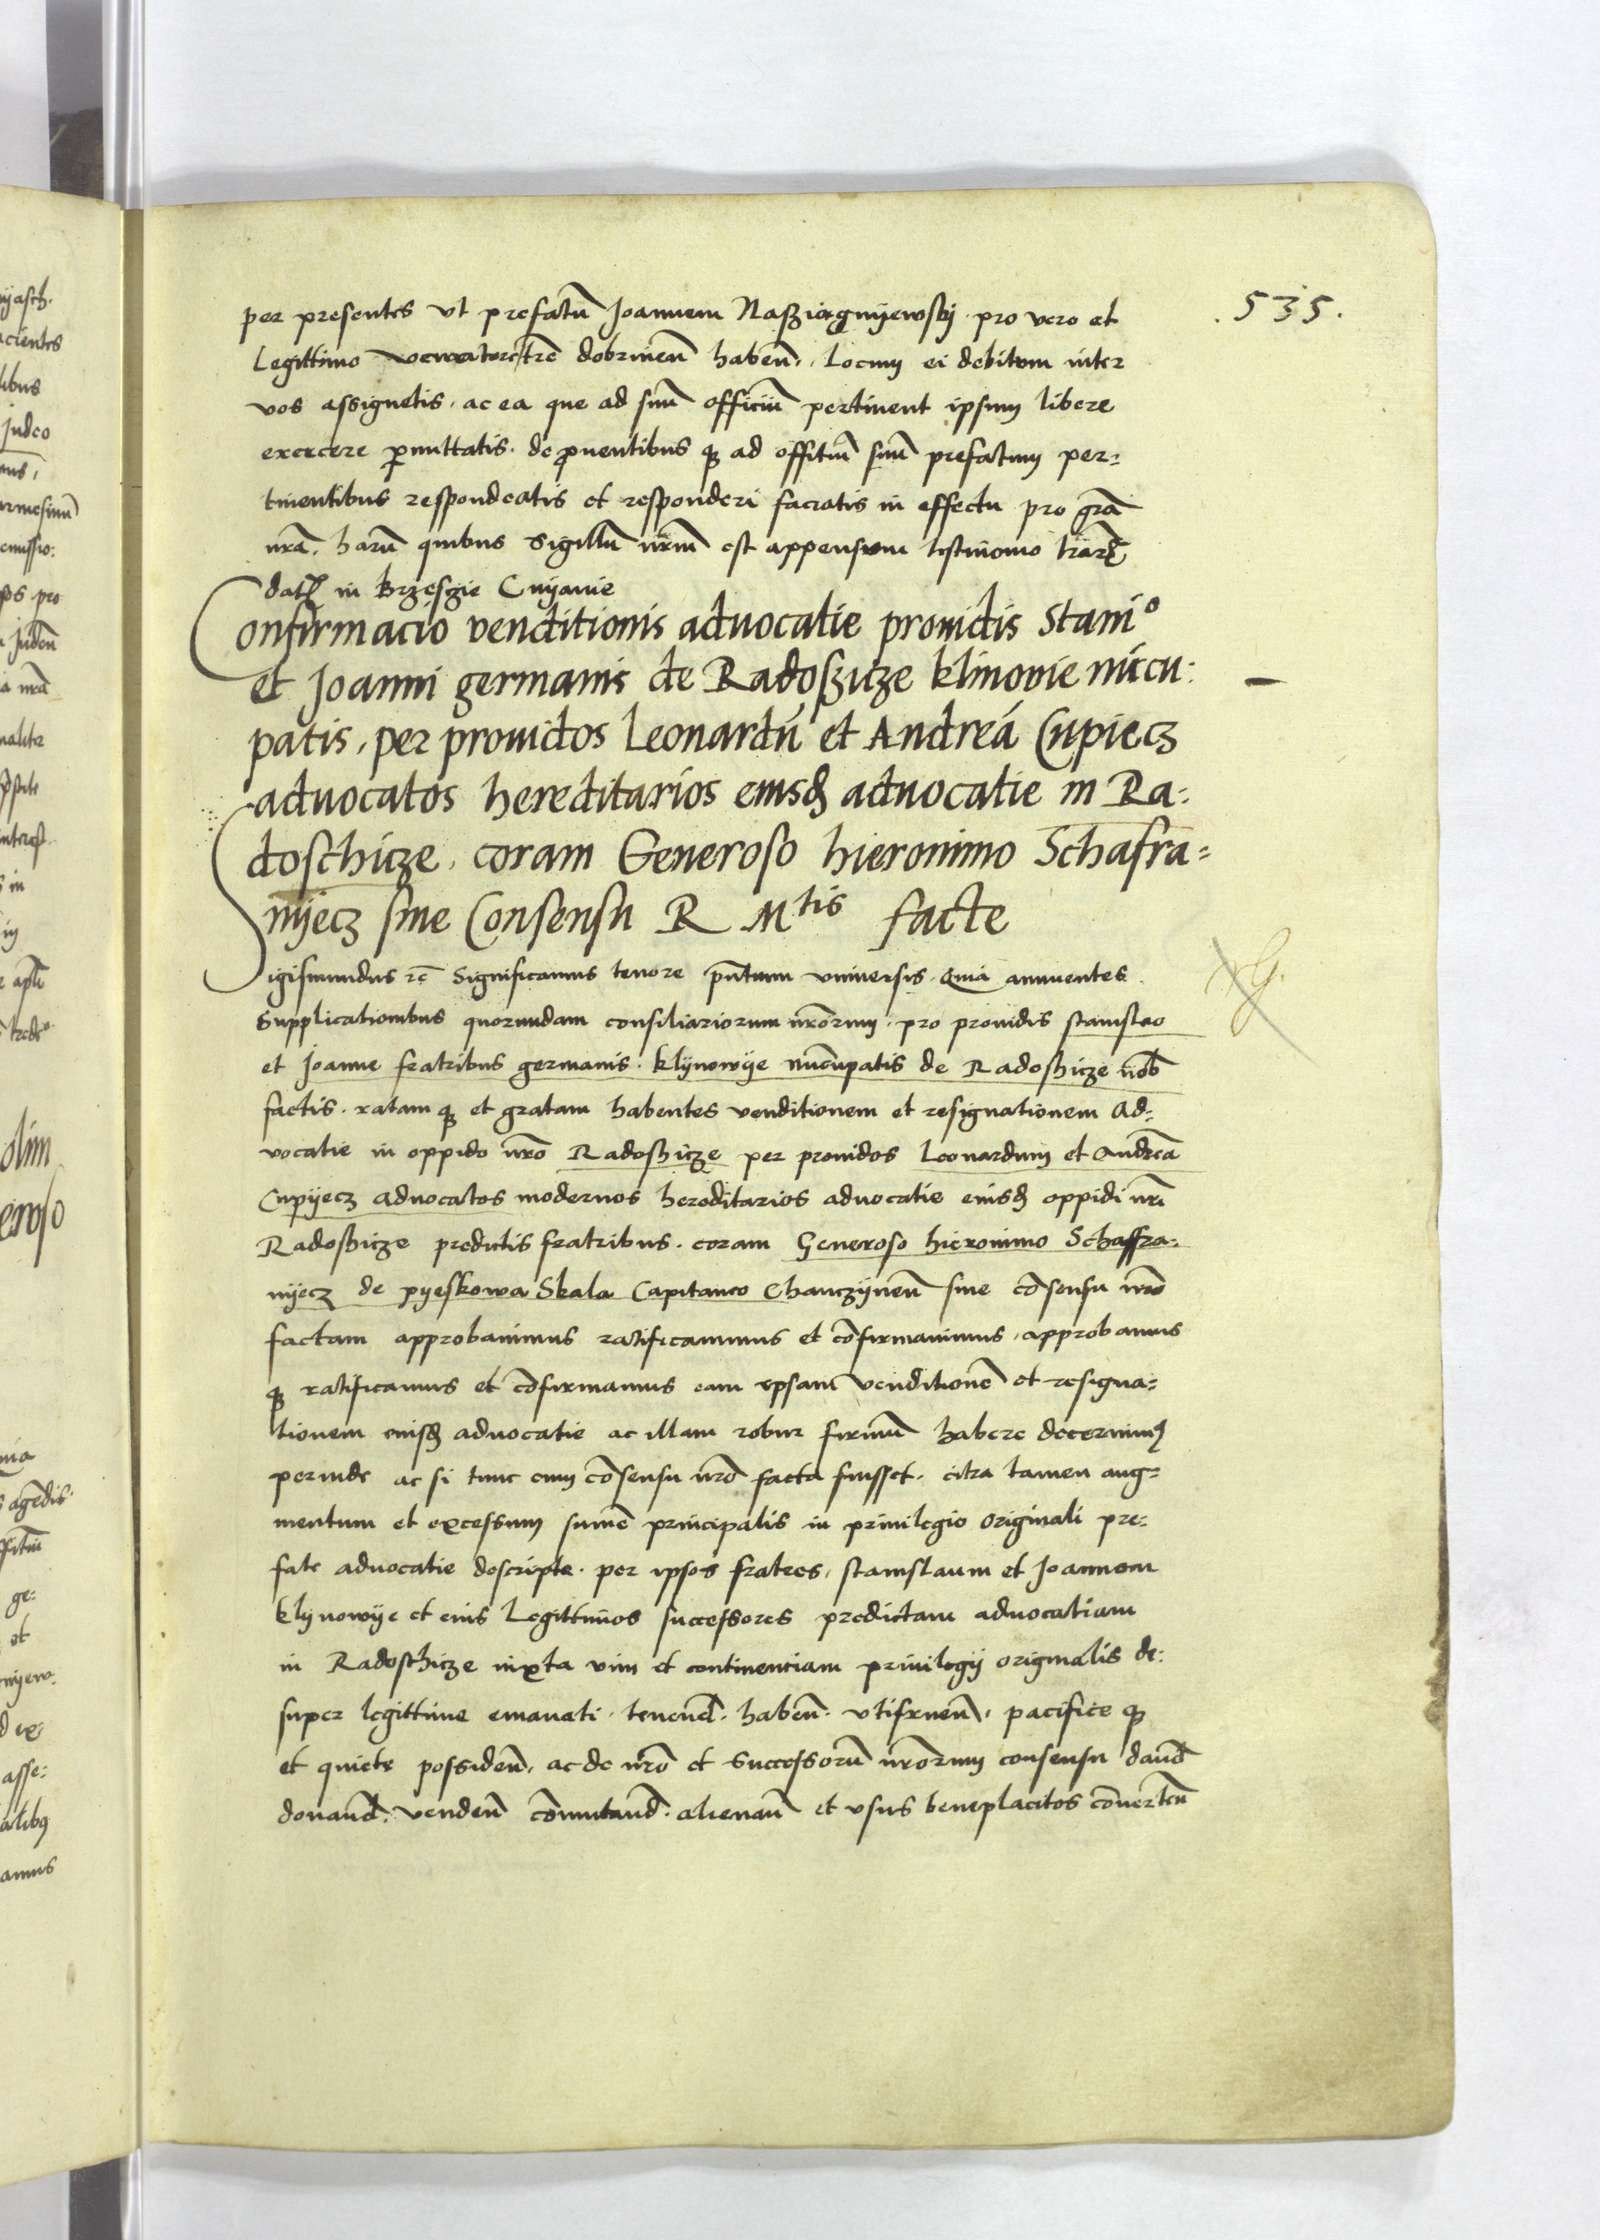 .535.
per presentes vt prefatū Joannem Naszięgnijewskij pro vero et
Legittimo trē dobrineñ habeñ. Locum ei debitum inter
vos assignetis. ac ea que ad suū officiū pertinent ipsum libere
exercere p̄mittatis. de prouentibus q3 ad offitiū suū prefatum per=
tinentibus respondeatis et responderi faciatis in effectu pro grā
nrā. harū quibus Sigillū nrm̄ est appensum testimonio lrar̄
dat̄ in Brzesczie Cuijauie
Confirmacio venditionis aduocatie prouidis Staniº
et Joanni germanis de Radoszicze klinovie nūcu:
patis, per prouidos Leonardū et Andreā Cupiecz
aduocatos hereditarios eiusd̄ aduocatie in Ra:
doschicze, coram Generoso hieronimo Schafra=
nijecz sine Consensu R Mtis facte
Sigismundus rc̄ Significamus tenore pn̄tium vniuersis. Quia annuentes
Supplicationibus quorundam consiliariorum nr̄orum. pro prouidis stanislao
et Joanne fratribus germanis. klijnowije nūcupatis de Radoszicze nob̄
factis. ratam q3 et gratam habentes venditionem et resignationem Ad=
vocatie in oppido nr̄o Radoszicze per prouidos Leonardum et Andreā
Cupijecz aduocatos modernos hereditarios aduocatie eiusd̄ oppidi nr̄i
Radoszicze predictis fratribus. coram Generoso hieronimo Schaffra=
nijecz de pyeskowa Skala Capitaneo Chanczijneñ sine cōsensu nr̄o
factam approbauimus ratificauimus et cōfirmauimus, approbamus
q3 ratificamus et cōfirmamus eam ipsam venditionē et resigna=
tionem eiusd̄ aduocatie ac illam robur firmū habere decernim9
perinde ac si tunc cum cōsensu nr̄o facta fuisset. citra tamen aug=
mentum et excessum sume principalis in priuilegio originali pre=
fate aduocatie descripte. per ipsos fratres, stanislaum et Joannem
klijnowije et eius Legittimos successores predictam aduocatiam
in Radoschicze iuxta vim et continentiam priuilegij originalis de:
super legittime emanati. teneñd. habeñ. vtifrueñ, pacifice q3
et quiete possideñ, ac de nr̄o et Successorū nr̄orum consensu dand̄
donand̄. vendeñ cōmutand̄. alienañ et vsus beneplacitos cōuerteñ